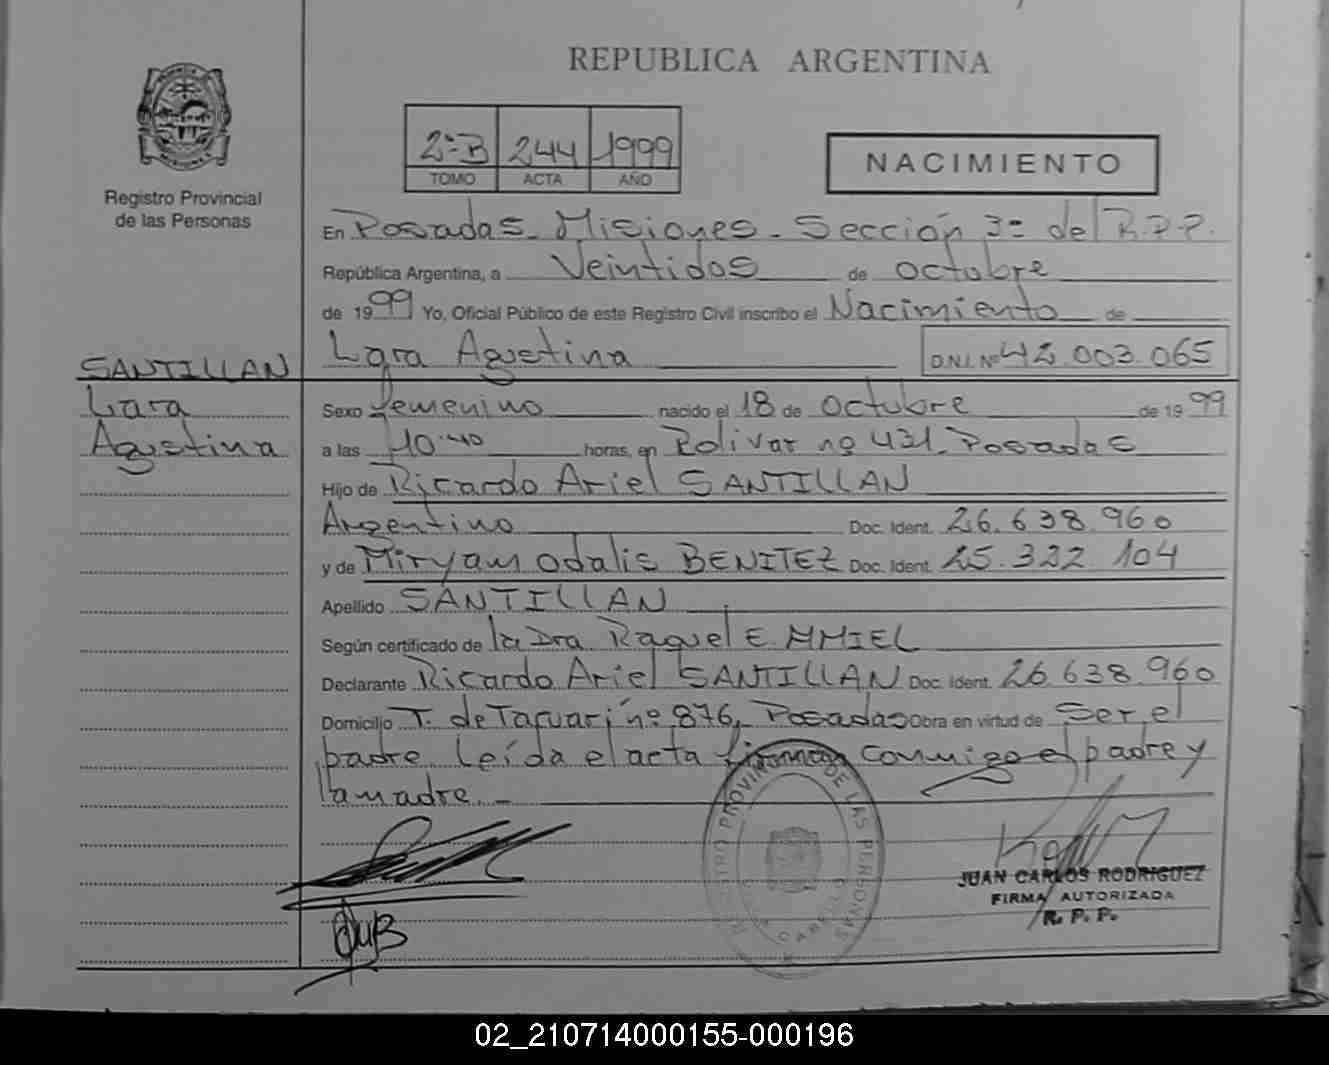 REPUBLICA ARGENTINA
2º-B 244 1999
TOMO ACTA AÑO
NACIMIENTO
Registro Provincial
de las Personas
En Posadas Misiones - Sección 3º del R.P.P.
República Argentina, a Veintidos de octubre
de 1999 Yo, Oficial Público de este Registro Civil inscribo el Nacimiento de
Lara Agustina D.N.I. Nº 42.003.065
SANTILLAN
Lara
Agustina
Sexo femenino nacido el 18 de octubre de 1999
a las 10.40 horas, en Bolivar nº 431. Posadas
Hijo de Ricardo Ariel SANTILLAN
Argentino Doc. Ident. 26.638.960
y de Miryam Odalis BENITEZ Doc. Ident. 25.322.104
Apellido SANTILLAN
Según certificado de la Dra. Raquel E.
Declarante Ricardo Ariel SANTILLAN Doc. Ident. 26.638.960
Domicilio T. de Tacuari nº 876, Posadas Obra en virtud de Ser el
padre. Leída el acta firman conmigo el padre y
la madre. -
REGISTRO PROVINCIAL DE LAS PERSONAS
JUAN CARLOS RODRIGUEZ
FIRMA AUTORIZADA
R. P. P.
02_210714000155-000196